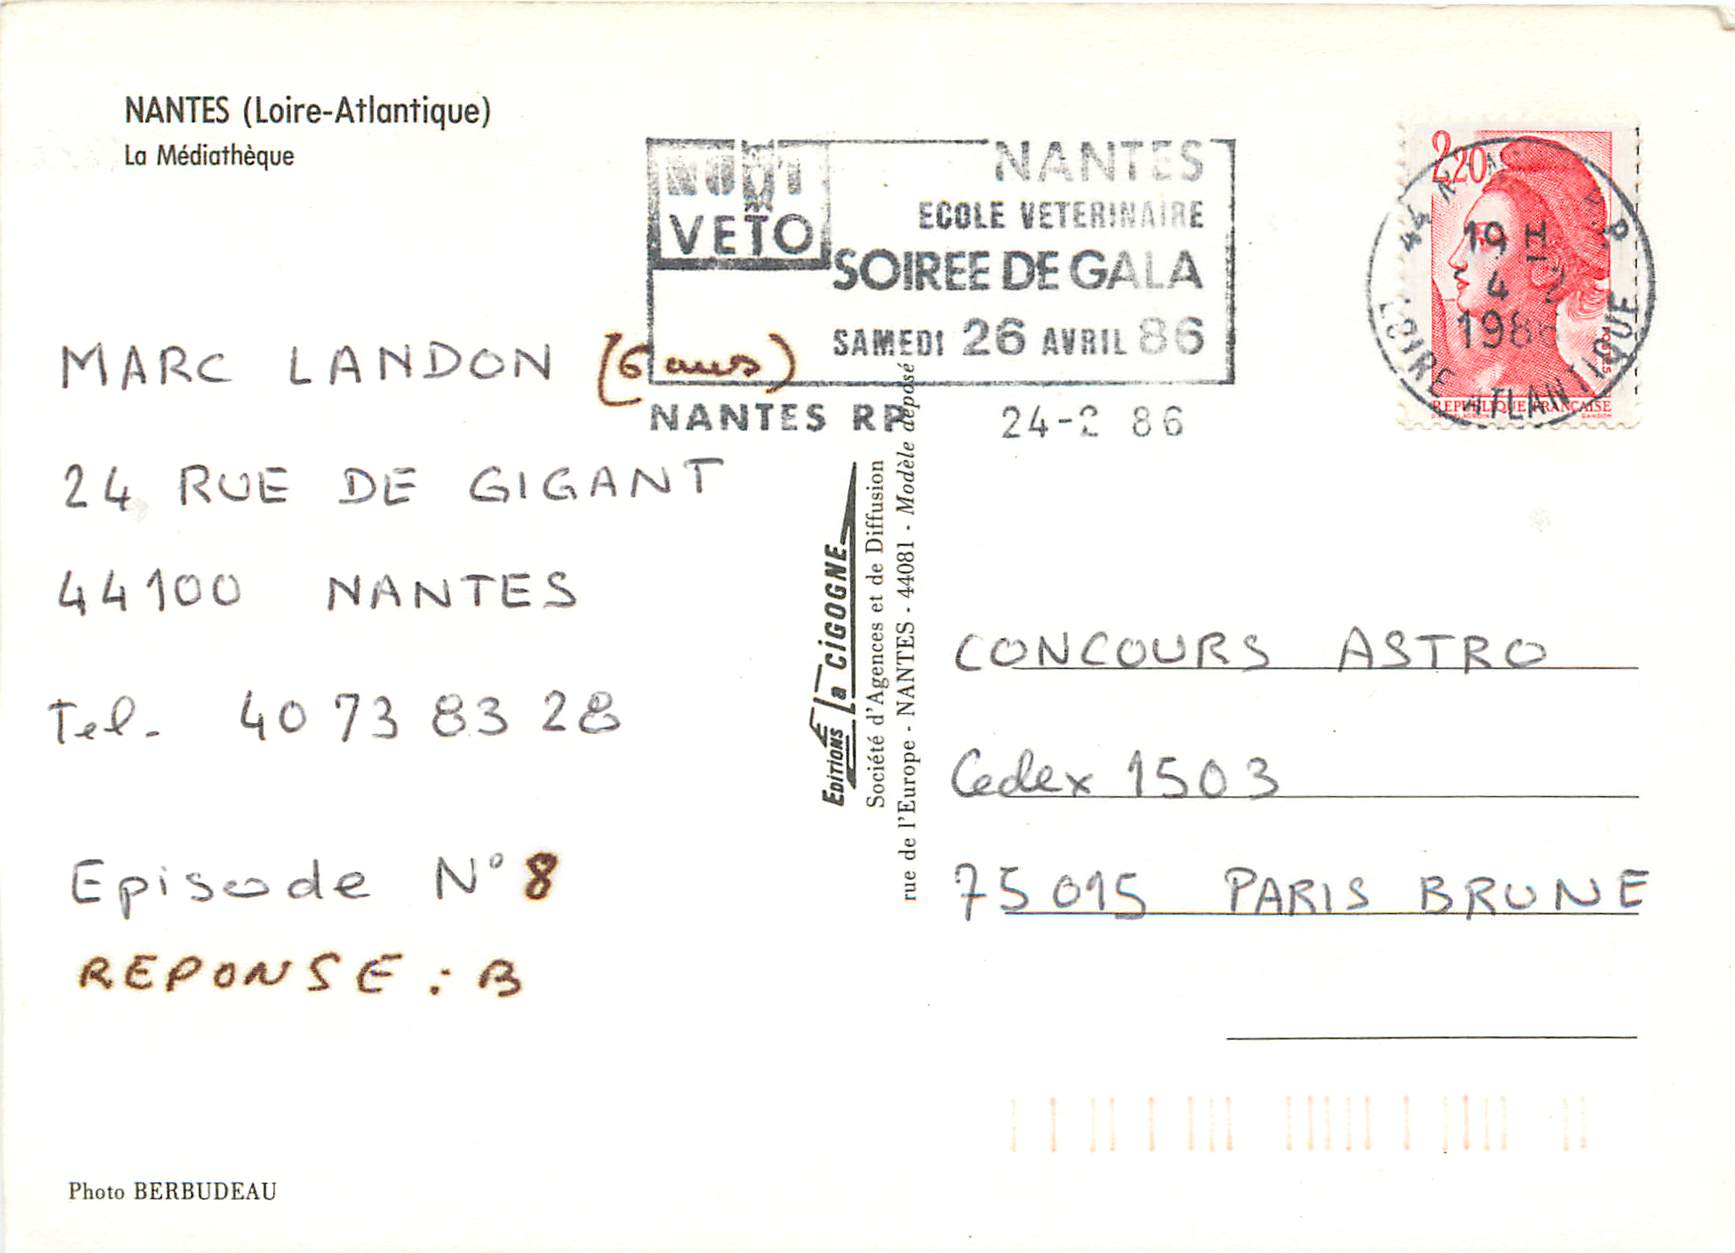 NANTES (Loire-Atlantique)
La Médiathèque
NUIT
VETO
NANTES
ECOLE VETERINAIRE
SOIREE DE GALA
SAMEDI 26 AVRIL 86
NANTES RP 24-2 86
2,20
19 H
1986
LOIRE ATLANTIQUE
REPUBLIQUE FRANÇAISE
MARC LANDON (6 ans)
24 RUE DE GIGANT
44100 NANTES
Tel. 40 73 83 28
Episode N° 8
REPONSE : B
Editions La CIGOGNE
Société d'Agences et de Diffusion
rue de l'Europe - NANTES - 44081 - Modèle déposé
CONCOURS ASTRO
Cedex 1503
75015 PARIS BRUNE
Photo BERBUDEAU